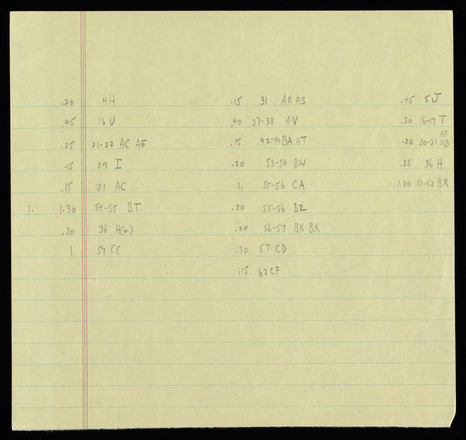 .20 4H
.45 16 U
.25 21-22 AC AE
.15 29 I
.15 31 AC
1. 1.30 54-55 BT
.30 36 H(r)
1 59 CC
.15 31 AR AS
.40 37-38 AV
.15 42-41 BA AT
.20 53-54 BW
1. 55-56 CA
.20 55-56 BZ
.20 56-57 BX BX
.30 57 CD
.15 62 CF
.45 5 J
.30 16-17 T
.20 20-21 AF
.35 36 H
1.20 51-52 BR